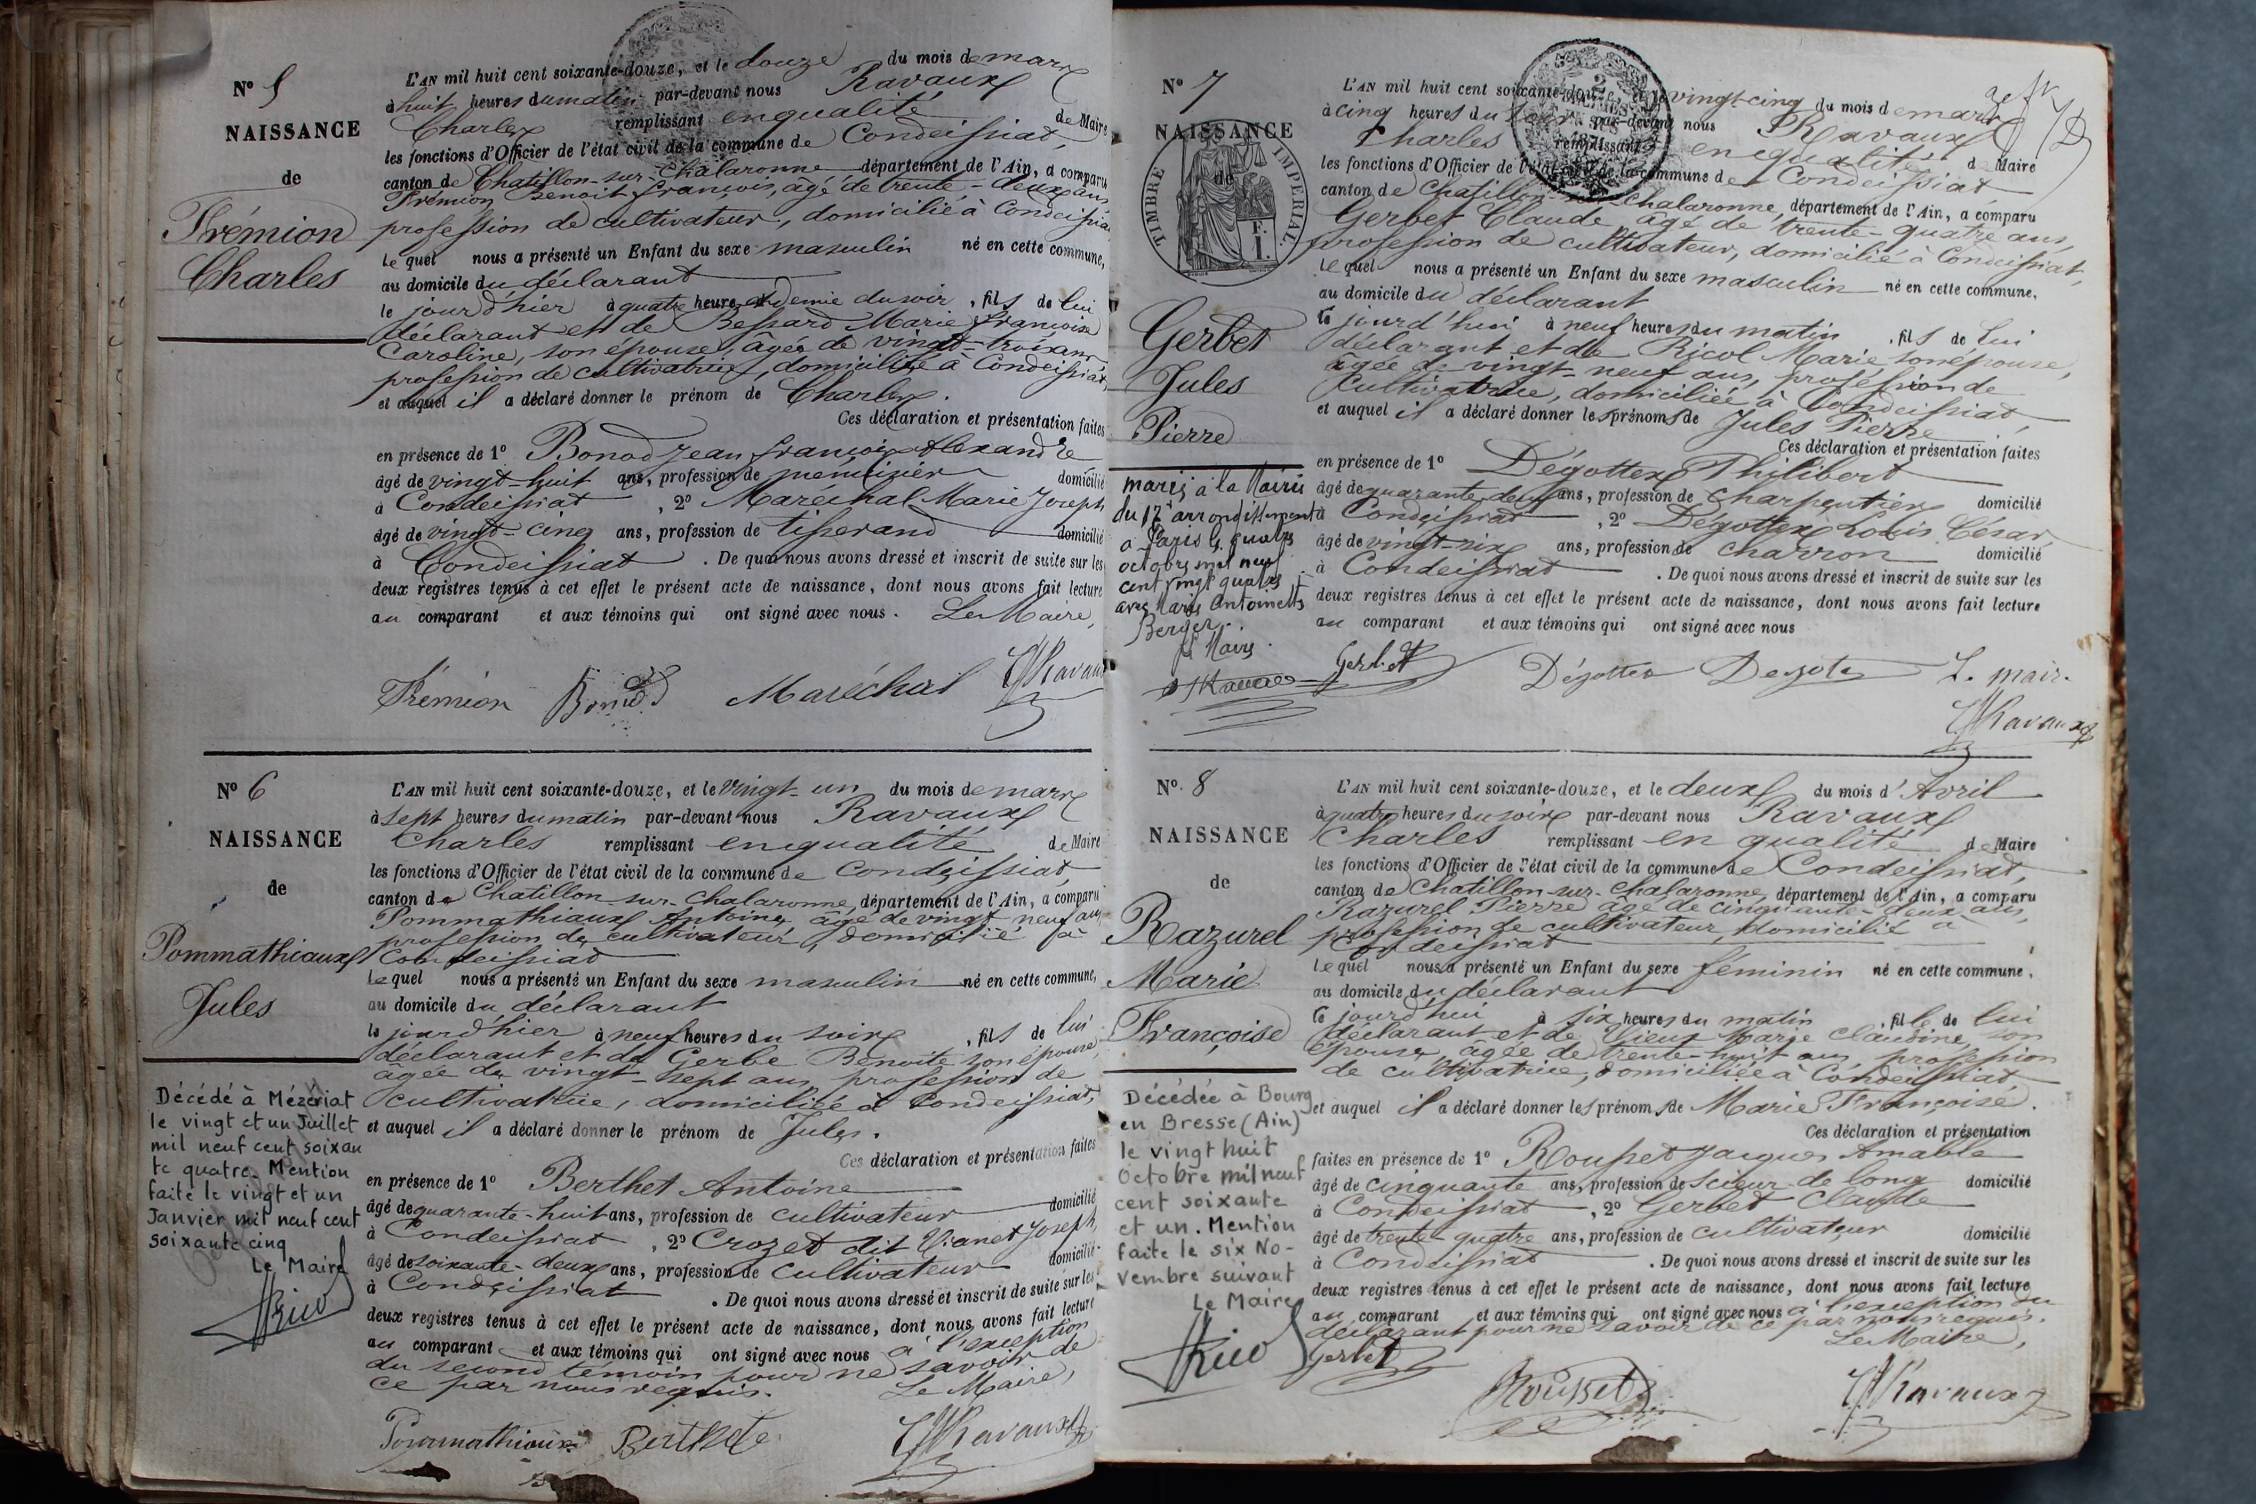 N° 5
NAISSANCE
de
Frémion
Charles
L'AN mil huit cent soixante-douze, et le douze du mois de mars
à huit heures du matin par-devant nous Ravaux
Charles remplissant en qualité de Maire
les fonctions d'Officier de l'état civil de la commune de Condeissiat,
canton de Chatillon-sur-Chalaronne département de l'Ain, a comparu
Frémion Benoit François, âgé de trente-deux ans
profession de cultivateur, domicilié à Condeissiat
lequel nous a présenté un Enfant du sexe masculin né en cette commune,
au domicile du déclarant
le jour d'hier à quatre heures et demie du soir, fils de lui
déclarant et de Bessard Marie Françoise
Caroline, son épouse, âgée de vingt-trois ans
profession de cultivatrice, domiciliée à Condeissiat,
et auquel il a déclaré donner le prénom de Charles.
Ces déclaration et présentation faites
en présence de 1° Bonod Jean François Alexandre
âgé de vingt-huit ans, profession de menuizier domicilié
à Condeissiat, 2° Maréchal Marie Joseph
âgé de vingt-cinq ans, profession de tisserand domicilié
à Condeissiat. De quoi nous avons dressé et inscrit de suite sur les
deux registres tenus à cet effet le présent acte de naissance, dont nous avons fait lecture
au comparant et aux témoins qui ont signé avec nous. Le Maire,
Frémion Bonod Maréchal Ravaux
N° 6
NAISSANCE
de
Pommathiaux
Jules
Décédé à Mézériat
le vingt et un Juillet
mil neuf cent soixan
te quatre. Mention
faite le vingt et un
Janvier mil neuf cent
soixante cinq
Le Maire
L'AN mil huit cent soixante-douze, et le vingt-un du mois de mars
à sept heures du matin par-devant nous Ravaux
Charles remplissant en qualité de Maire
les fonctions d'Officier de l'état civil de la commune de Condeissiat,
canton de Chatillon-sur-Chalaronne, département de l'Ain, a comparu
Pommathiaux Antoine, âgé de vingt-neuf ans,
profession de cultivateur, domicilié à
Condeissiat
lequel nous a présenté un Enfant du sexe masculin né en cette commune,
au domicile du déclarant
le jour d'hier à neuf heures du soir, fils de lui
déclarant et de Gerbe Benoite son épouse,
âgée de vingt-sept ans, profession de
cultivatrice, domiciliée à Condeissiat,
et auquel il a déclaré donner le prénom de Jules.
Ces déclaration et présentation faites
en présence de 1° Berthet Antoine
âgé de quarante-huit ans, profession de cultivateur domicilié
à Condeissiat, 2° Crozet dit Vianet Joseph,
âgé de soixante-deux ans, profession de cultivateur domicilié
à Condeissiat. De quoi nous avons dressé et inscrit de suite sur les
deux registres tenus à cet effet le présent acte de naissance, dont nous avons fait lecture
au comparant et aux témoins qui ont signé avec nous à l'exception
du second témoin pour ne savoir de
ce par nous requis. Le Maire,
Pommathiaux Berthet Ravaux
N° 7
NAISSANCE
de
TIMBRE IMPERIAL
Gerbet
Jules
Pierre
marié à la Mairie
du 12e arrondissement
à Paris le quatre
octobre mil neuf
cent vingt quatre
avec Marie Antoinette
Berger.
Le Maire
Ravaux
L'AN mil huit cent soixante-douze, et le vingt-cinq du mois de mars
à cinq heures du soir par-devant nous Ravaux
Charles remplissant en qualité de Maire
les fonctions d'Officier de l'état civil de la commune de Condeissiat
canton de Chatillon-sur-Chalaronne, département de l'Ain, a comparu
Gerbet Claude âgé de trente-quatre ans,
profession de cultivateur, domicilié à Condeissiat,
lequel nous a présenté un Enfant du sexe masculin né en cette commune,
au domicile du déclarant
le jourd'hui à neuf heures du matin, fils de lui
déclarant et de Ricol Marie, son épouse,
âgée de vingt-neuf ans, profession de
Cultivatrice, domiciliée à Condeissiat,
et auquel il a déclaré donner les prénoms de Jules Pierre
Ces déclaration et présentation faites
en présence de 1° Dégottex Philibert
âgé de quarante-deux ans, profession de charpentier domicilié
à Condeissiat, 2° Dégottex Louis César,
âgé de vingt-six ans, profession de charron domicilié
à Condeissiat. De quoi nous avons dressé et inscrit de suite sur les
deux registres tenus à cet effet le présent acte de naissance, dont nous avons fait lecture
au comparant et aux témoins qui ont signé avec nous
Gerbet Dégottex Le maire
Ravaux
N° 8
NAISSANCE
de
Razurel
Marie
Françoise
Décédée à Bourg
en Bresse (Ain)
le vingt huit
Octobre mil neuf
cent soixante
et un. Mention
faite le six No-
vembre suivant
Le Maire
L'AN mil huit cent soixante-douze, et le deux du mois d'Avril
à quatre heures du soir par-devant nous Ravaux
Charles remplissant en qualité de Maire
les fonctions d'Officier de l'état civil de la commune de Condeissiat,
canton de Chatillon-sur-Chalaronne, département de l'Ain, a comparu
Razurel Pierre âgé de cinquante-deux ans,
profession de cultivateur, domicilié à
Condeissiat
lequel nous a présenté un Enfant du sexe féminin né en cette commune,
au domicile du déclarant
le jourd'hui à six heures du matin, fille de lui
déclarant et de Vieux Marie Claudine, son
épouse, âgée de trente-huit ans, profession
de cultivatrice, domiciliée à Condeissiat
et auquel il a déclaré donner les prénoms de Marie Françoise.
Ces déclaration et présentation
faites en présence de 1° Rousset Jacques Amable
âgé de cinquante ans, profession de scieur de long domicilié
à Condeissiat, 2° Gerbet Claude
âgé de trente-quatre ans, profession de cultivateur domicilié
à Condeissiat. De quoi nous avons dressé et inscrit de suite sur les
deux registres tenus à cet effet le présent acte de naissance, dont nous avons fait lecture
au comparant et aux témoins qui ont signé avec nous à l'exception du
déclarant pour ne savoir de ce par nous requis.
Le Maire,
Gerbet
Rousset Ravaux